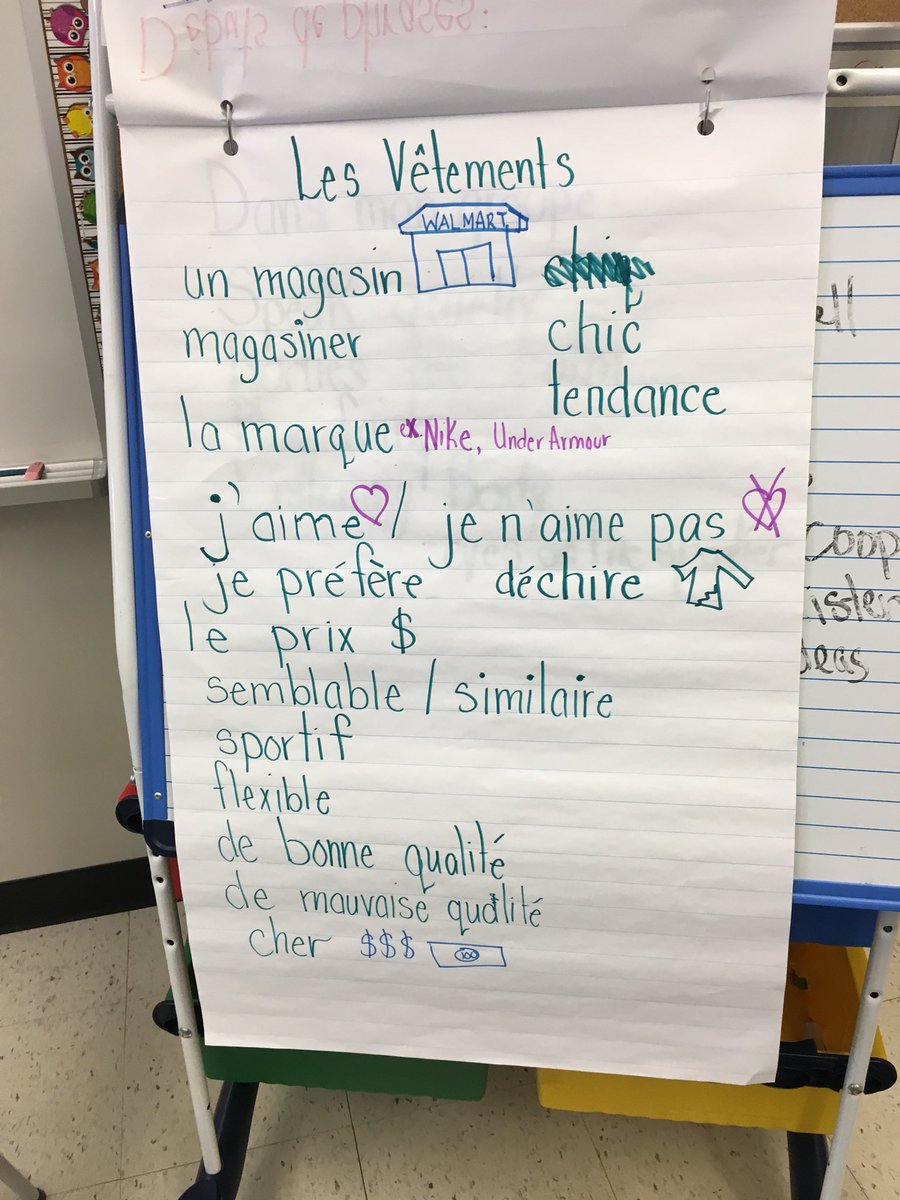 Débuts de phrases:
Les Vêtements
WALMART
un magasin
chic
magasiner
tendance
la marque ex Nike, Under Armour
j'aime / je n'aime pas
je préfère déchire
le prix $
semblable / similaire
sportif
flexible
de bonne qualité
de mauvaise qualité
cher $$$ 100
ell
Coop
isten
deas